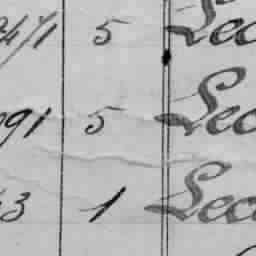 5 Lec
91 5 Lec
3 1 Lec